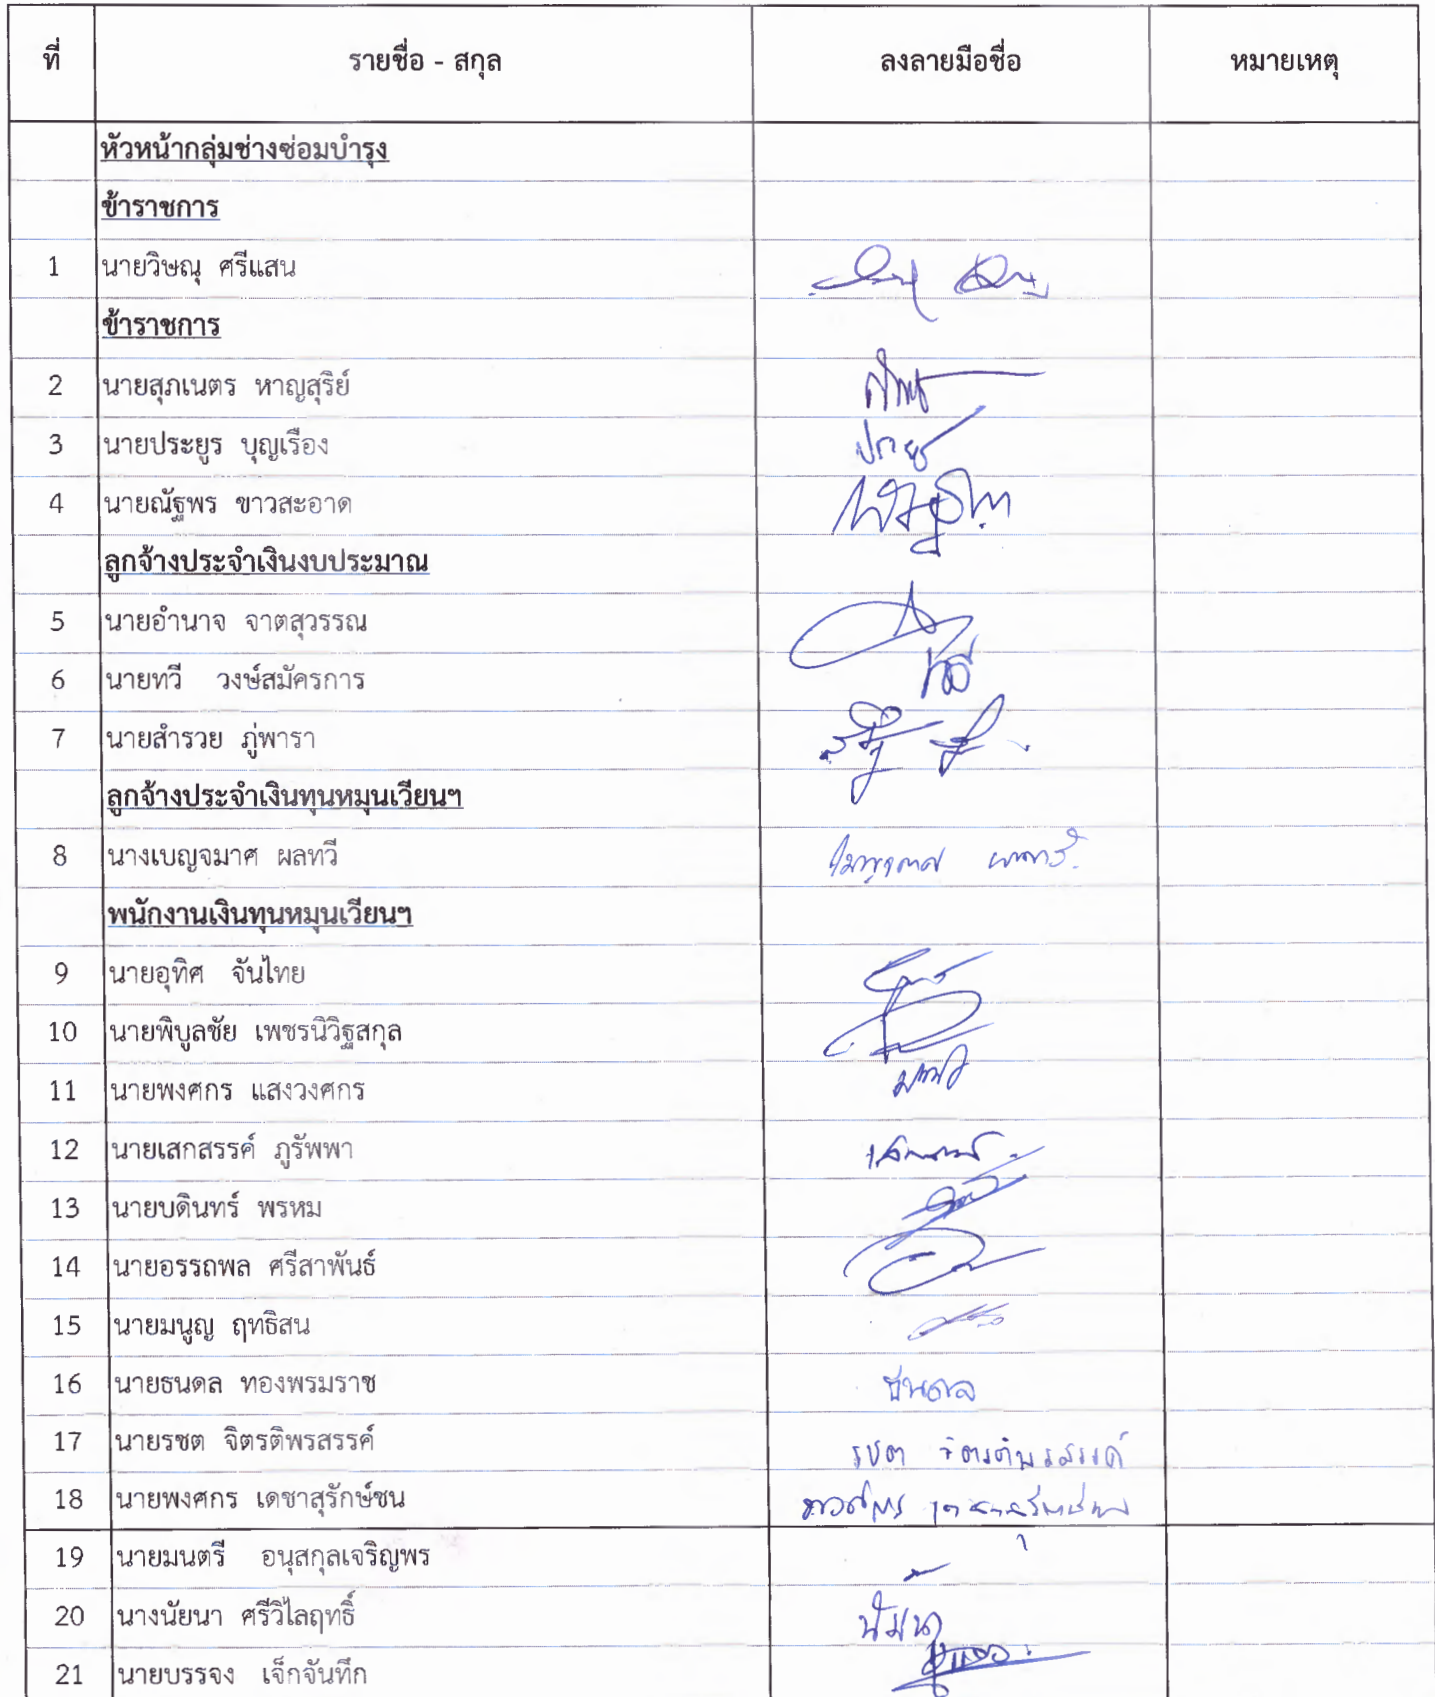 ที่ รายชื่อ - สกุล ลงลายมือชื่อ หมายเหตุ
หัวหน้ากลุ่มช่างซ่อมบำรุง
ข้าราชการ
1 นายวิษณุ ศรีแสน
ข้าราชการ
2 นายสุภเนตร หาญสุริย์
3 นายประยูร บุญเรือง ประยูร
4 นายณัฐพร ขาวสะอาด
ลูกจ้างประจำเงินงบประมาณ
5 นายอำนาจ จาตสุวรรณ
6 นายทวี วงษ์สมัครการ ทวี
7 นายสำรวย ภู่พารา
ลูกจ้างประจำเงินทุนหมุนเวียนฯ
8 นางเบญจมาศ ผลทวี เบญจมาศ ผลทวี
พนักงานเงินทุนหมุนเวียนฯ
9 นายอุทิศ จันไทย
10 นายพิบูลชัย เพชรนิวิฐสกุล
11 นายพงศกร แสงวงศกร
12 นายเสกสรรค์ ภูรัพพา เสกสรรค์
13 นายบดินทร์ พรหม
14 นายอรรถพล ศรีสาพันธ์
15 นายมนูญ ฤทธิสน
16 นายธนดล ทองพรมราช ธนดล
17 นายรชต จิตรติพรสรรค์ รชต จิตรติพรสรรค์
18 นายพงศกร เดชาสุรักษ์ชน พงศกร เดชาสุรักษ์ชน
19 นายมนตรี อนุสกุลเจริญพร
20 นางนัยนา ศรีวิไลฤทธิ์ นัยนา
21 นายบรรจง เจ็กจันทึก